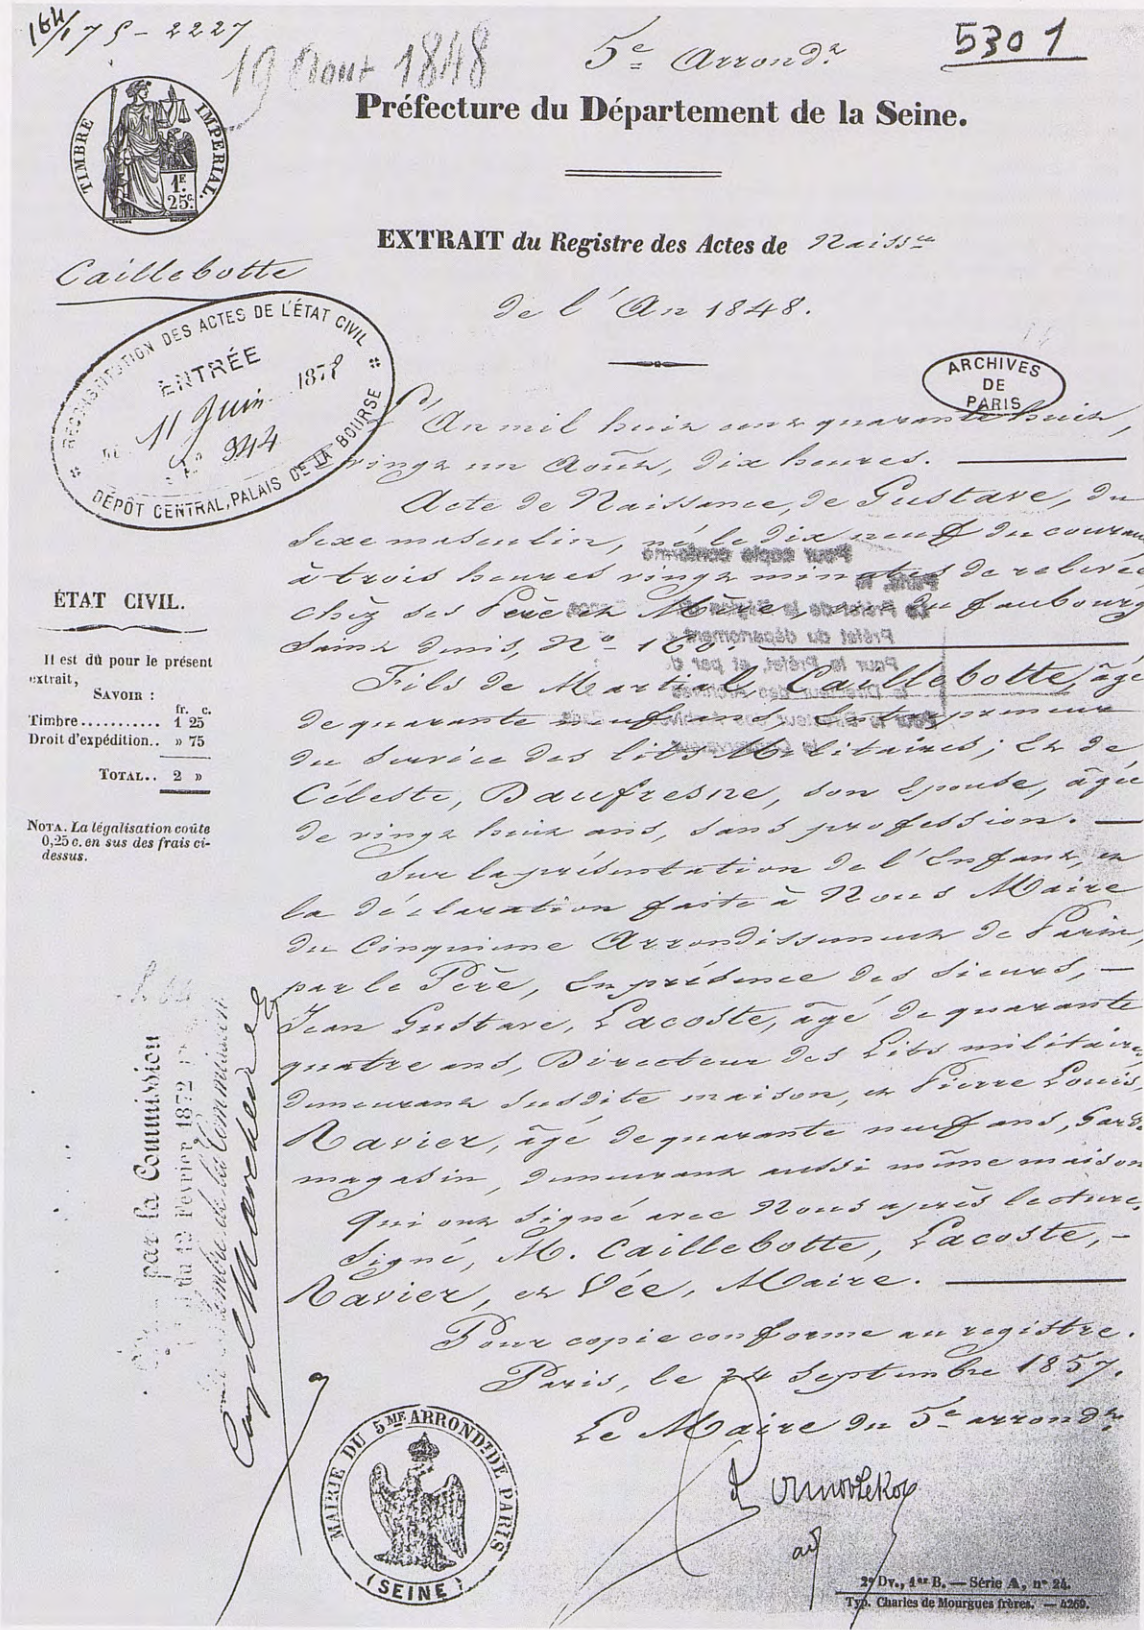 5e Arrondr
5301
19 Aout 1848
Préfecture du Département de la Seine.
TIMBRE IMPERIAL.
1F. 25c.
EXTRAIT du Registre des Actes de Naissce
de l'An 1848.
Caillebotte
RECONSTITUTION DES ACTES DE L'ÉTAT CIVIL
ENTRÉE
11 Juin 187
944
DÉPÔT CENTRAL, PALAIS DE LA BOURSE
ARCHIVES
DE
PARIS
L'An mil huit cent quarante huit,
vingt un Août, dix heures.
Acte de Naissance, de Gustave, du
sexe masculin, né le dix neuf du courant
à trois heures vingt minutes de relevée
chez ses Père et Mère, rue du faubourg
Saint denis, No 160.
Fils de Martial Caillebotte, âgé
de quarante neuf ans, Entrepreneur
du Service des lits Militaires; Et de
Céleste, Daufresne, son Epouse, âgée
de vingt huit ans, sans profession.
Sur la présentation de l'Enfant, et
la déclaration faite à Nous Maire
du Cinquième Arrondissement de Paris,
par le Père, En présence des sieurs,
Jean Gustave, Lacoste, âgé de quarante
quatre ans, Directeur des Lits militaires
demeurant susdite maison, et Pierre Louis
Ravier, âgé de quarante neuf ans, Garde
magasin, demeurant aussi même maison
Qui ont signé avec Nous après lecture,
Signé, M. Caillebotte, Lacoste,
Ravier, et Vée, Maire.
Pour copie conforme au registre.
Paris, le 24 Septembre 1857.
Le Maire du 5e arrondr
ÉTAT CIVIL.
Il est dû pour le présent
extrait,
SAVOIR :
fr. c.
Timbre........... 1 25
Droit d'expédition.. » 75
TOTAL.. 2 »
NOTA. La légalisation coûte
0,25 c. en sus des frais ci-
dessus.
par la Commission
du 12 Février 1872
Membre de la Commission
MAIRIE DU 5ME ARRONDT DE PARIS
(SEINE)
2e Dv., 1er B. — Série A, n° 24.
Typ. Charles de Mourgues frères. — 4269.